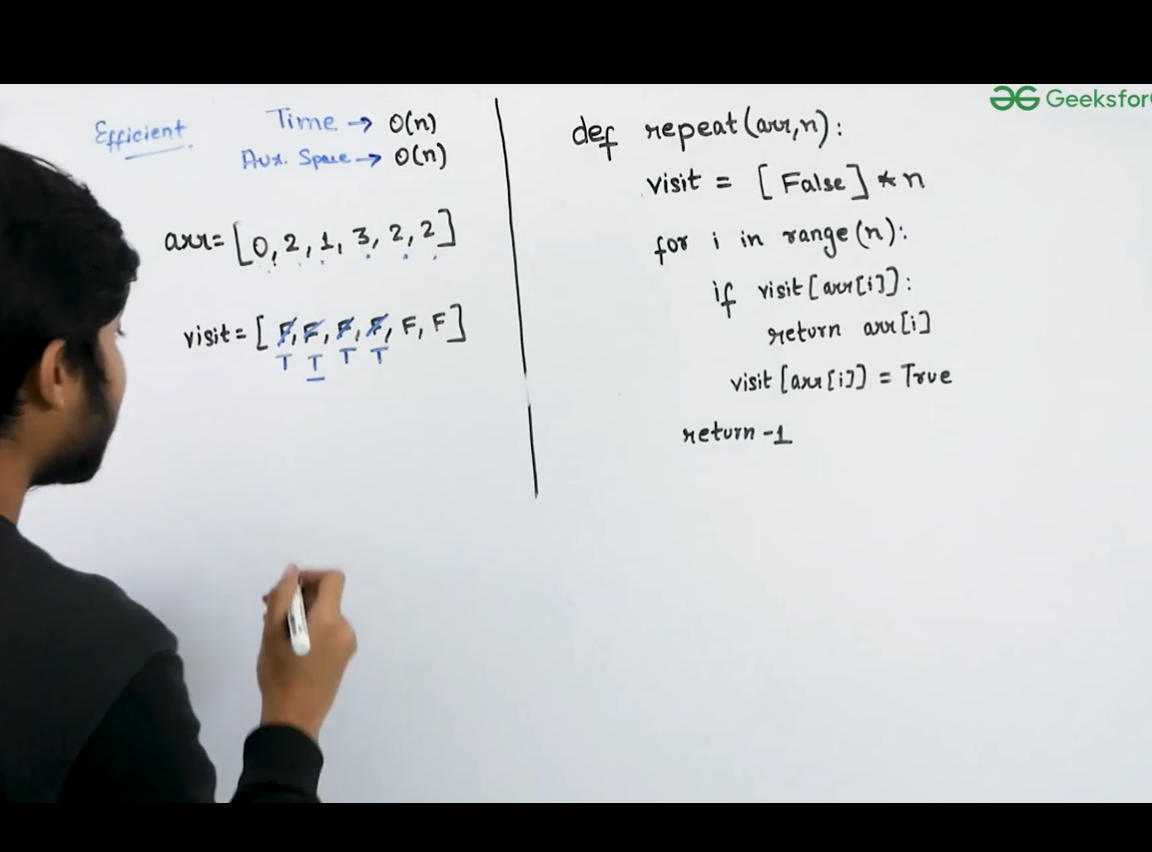 GeeksforG
Efficient.
Time → O(n)
Aux. Space → O(n)
arr = [0, 2, 1, 3, 2, 2]
visit = [F, F, F, F, F, F]
T T T T
def repeat(arr,n):
visit = [False] * n
for i in range(n):
if visit[arr[i]]:
return arr[i]
visit[arr[i]] = True
return -1